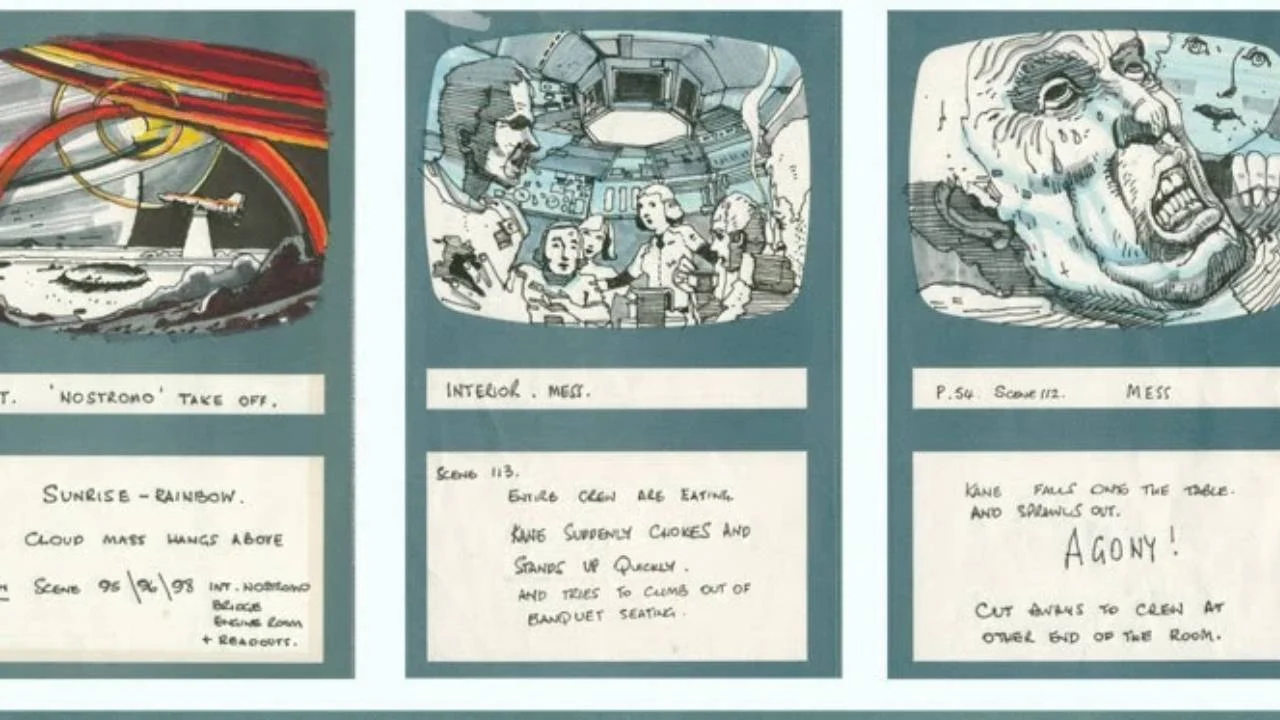 T. 'NOSTROMO' TAKE OFF.
SUNRISE - RAINBOW.
CLOUD MASS HANGS ABOVE
SCENE 95\96\98 INT. NOSTROMO
BRIDGE
ENGINE ROOM
+ READOUTS.
INTERIOR. MESS.
SCENE 113.
ENTIRE CREW ARE EATING.
KANE SUDDENLY CHOKES AND
STANDS UP QUICKLY.
AND TRIES TO CLIMB OUT OF
BANQUET SEATING.
P.54. SCENE 112. MESS
KANE FALLS ONTO THE TABLE.
AND SPRAWLS OUT.
AGONY!
CUT AWAYS TO CREW AT
OTHER END OF THE ROOM.